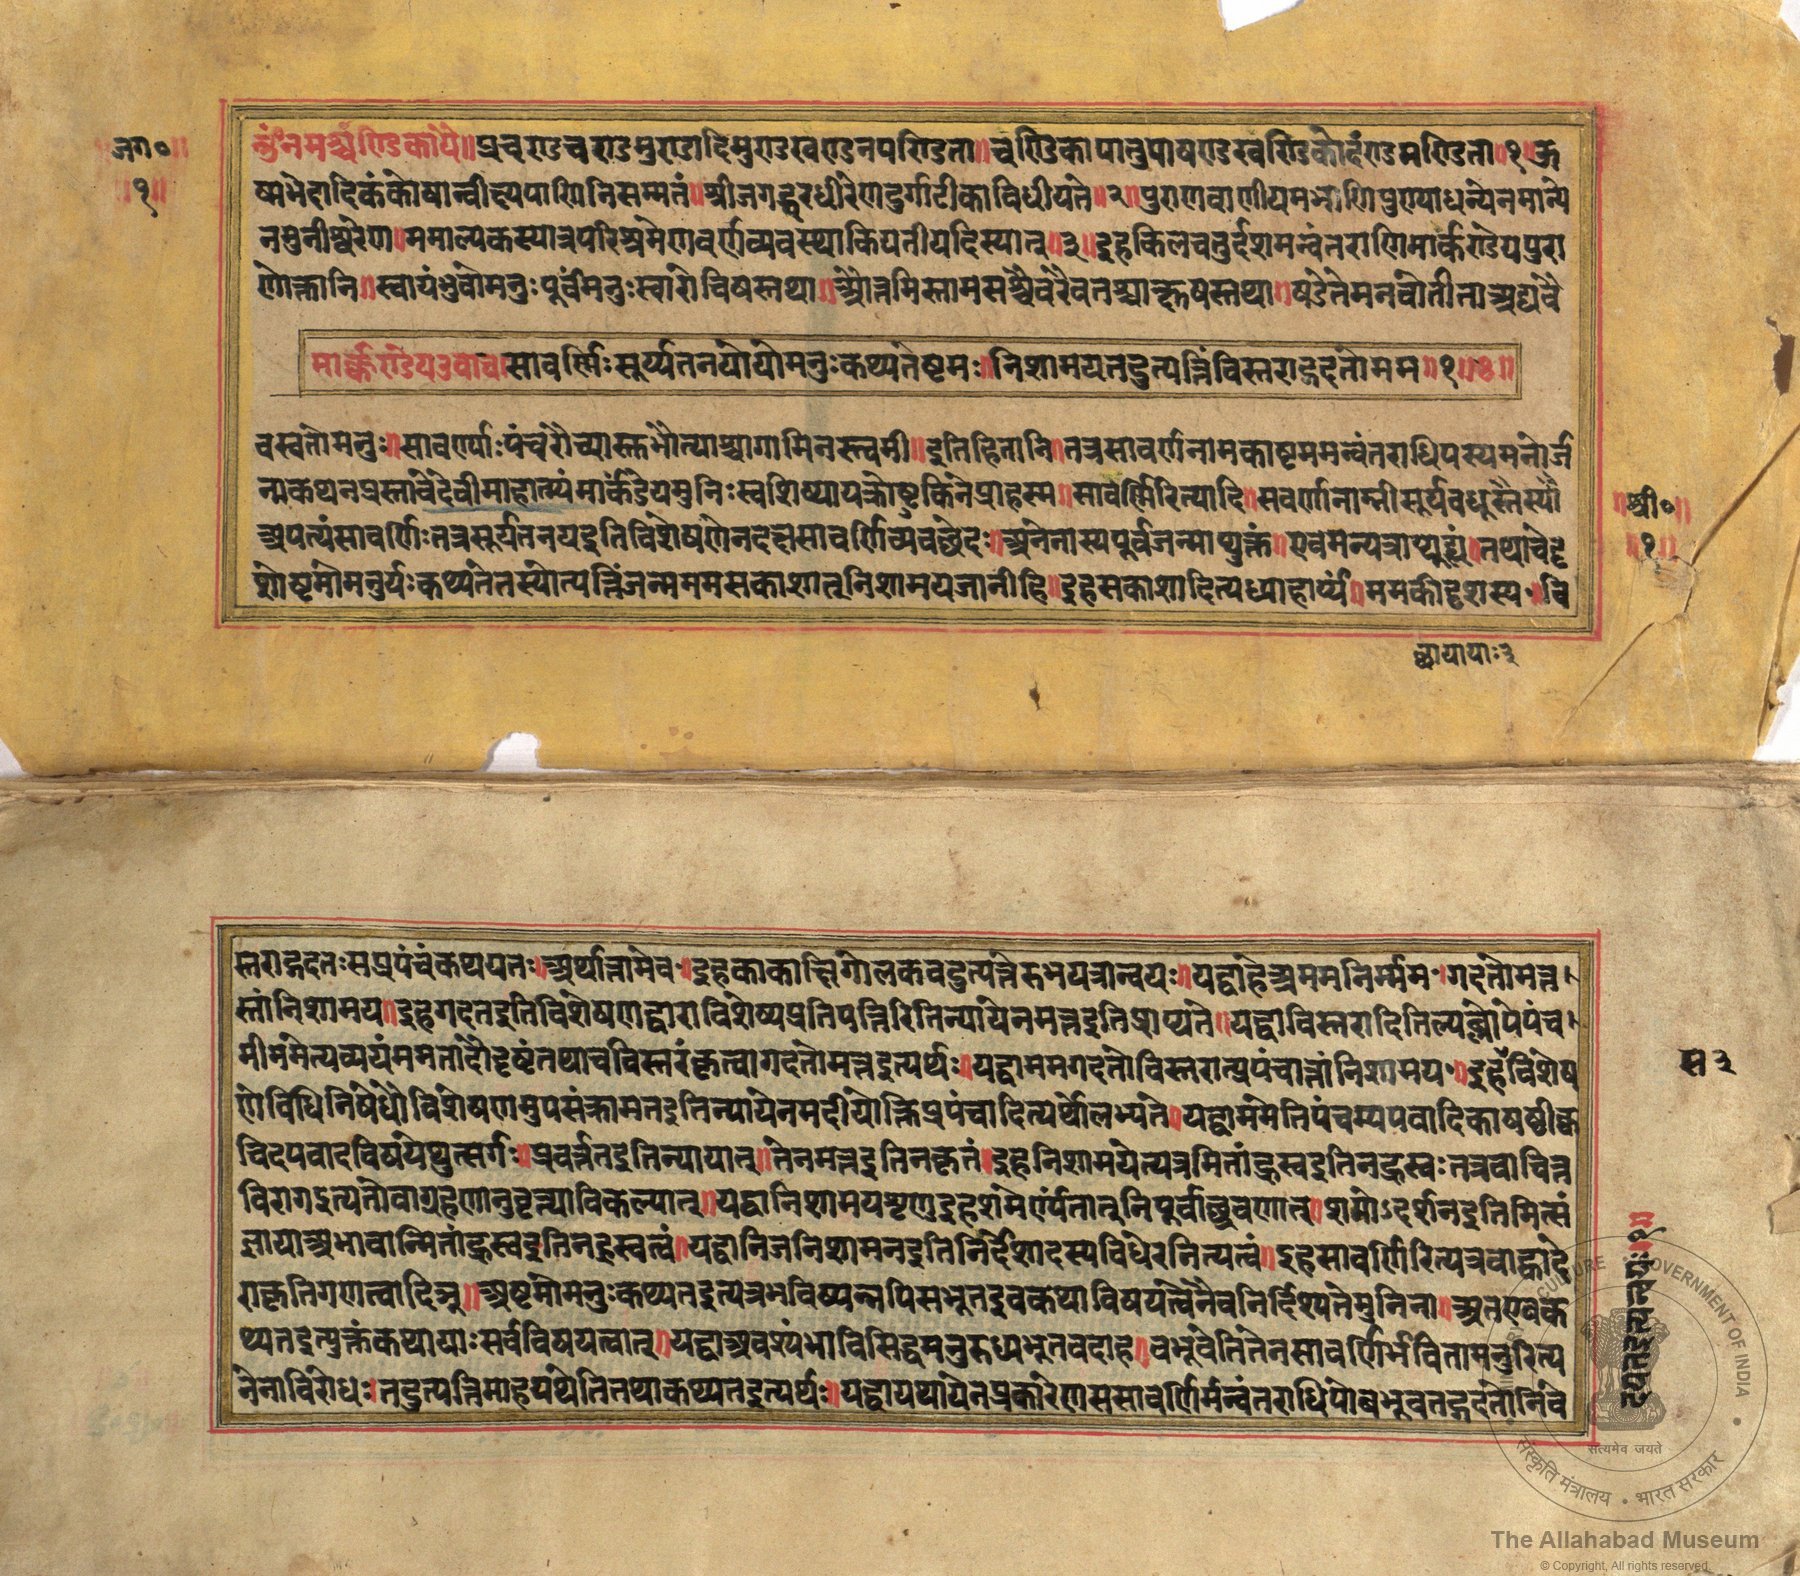 जग०॥
॥१॥
ॐनमश्चण्डिकायै॥प्रचण्डचण्डमुण्डादिमुण्डखण्डनपण्डिता॥चण्डिकापातुपाषण्डखण्डिकोद्दंण्डमण्डिता॥१॥ऊ
ष्मभेदादिकंकोषान्वीक्ष्यपाणिनिसम्मतं॥श्रीजगद्धरधीरेणदुर्गाटीकाविधीयते॥२॥पुराणवाणीयमभाणिपुण्याधन्येनमान्ये
नमुनीश्वरेण॥ममाल्पकस्यात्रपरिश्रमेणवर्णव्यवस्थाकियतीयदिस्यात्॥३॥इहकिलचतुर्दशमन्वंतराणिमार्कण्डेयपुरा
णोक्तानि॥स्वायंभुवोमनुःपूर्वंमनुःस्वारोचिषस्तथा॥औत्तमिस्तामसश्चैवरैवतश्चाक्षुषस्तथा॥षडेतेमनवोतीताअद्यवै
मार्क्कण्डेयउवाच॥सावर्णिःसूर्य्यतनयोयोमनुःकथ्यतेष्टमः॥निशामयतदुत्पत्तिंविस्तराद्गदतोमम॥१॥४॥
वस्वतोमनुः॥सावर्ण्याःपंचरौच्यास्तभौत्याश्चागामिनस्त्वमी॥इतिहितानि॥तत्रसावर्णनामकाष्टममन्वंतराधिपस्यमनोर्ज
न्मकथनप्रस्तावेदेवीमाहात्म्यंमार्कंडेयमुनिःस्वशिष्यायक्रोष्टुकिनेप्राहस्म॥सावर्णिरित्यादि॥सवर्णनाम्नीसूर्यवधूस्तस्यौ
अपत्यंसावर्णिःतत्रसूर्यतनयइतिविशेषणेनदक्षसावर्णिव्यवच्छेदः॥अनेनास्यपूर्वजन्माप्युक्तं॥एवमन्यत्राप्यूह्यं॥तथाचेदृ
शोष्टमोमनुर्यःकथ्यतेतस्योत्पत्तिंजन्मममसकाशात्निशामयजानीहि॥इहसकाशादित्यध्याहार्य्यं॥ममकीदृशस्य॥वि
॥श्री०॥
॥१॥
स्तराद्गदतःसप्रपंचंकथयतः॥अर्थात्तामेव॥इहकाकाक्षिगोलकवदुत्पत्तेरुभयत्रान्वयः॥यद्वाहेअममनिर्म्मम॥गदतोमत्त
स्तांनिशामय॥इहगदतइतिविशेषणद्वाराविशेष्यप्रतिपत्तिरितिन्यायेनमत्तइतिप्राप्यते॥यद्वाविस्तरादितिल्यब्लोपेपंच
मीममेत्यव्ययंममतादौदृष्टंतथाचविस्तरंकृत्वागदतोमत्तइत्यर्थः॥यद्वाममगदतोविस्तरात्प्रपंचात्तांनिशामय॥इहविशेष
णेविधिनिषेधौविशेषणमुपसंक्रामतइतिन्यायेनमदीयोक्तिप्रपंचादित्यर्थोलभ्यते॥यद्वाममेतिपंचम्यपवादिकाषष्ठीक्व
चिदपवादविषयेप्युत्सर्गः॥प्रवर्त्ततइतिन्यायात्॥तेनमत्तइतिनकृतं॥इहनिशामयेत्यत्रमितांह्रस्वइतिनह्रस्वःतत्रवाचित्त
विरागइत्यतोवाग्रहणानुवृत्त्याविकल्पात्॥यद्वानिशामयशृणुइहशमेर्ण्यंतात्निपूर्वाच्छ्रवणात्॥शमोऽदर्शनइतिमित्सं
ज्ञायाअभावान्मितांह्रस्वइतिनह्रस्वत्वं॥यद्वानिजनिशामनइतिनिर्देशादस्यविधेरनित्यत्वं॥इहसावर्णिरित्यत्रबाह्वादे
राकृतिगणत्वादिञ्॥अष्टमोमनुःकथ्यतइत्यत्रभविष्यन्नपिसभूतइवकथाविषयत्वेनैवनिर्दिश्यतेमुनिना॥अतएवक
थ्यतइत्युक्तंकथायाःसर्वविषयत्वात्॥यद्वाअवश्यंभाविसिद्धमनुरुध्यभूतवदाह॥बभूवेतितेनसावर्णिर्भवितामनुरित्य
नेनाविरोधः॥तदुत्पत्तिमाहयथेतितथाकथ्यतइत्यर्थः॥यद्वायथायेनप्रकारेणससावर्णिर्मन्वंतराधिपोबभूवतद्गदतोनिव
स३
सत्यमेव जयते
संस्कृति मंत्रालय • भारत सरकार
GOVERNMENT OF INDIA
The Allahabad Museum
© Copyright, All rights reserved.